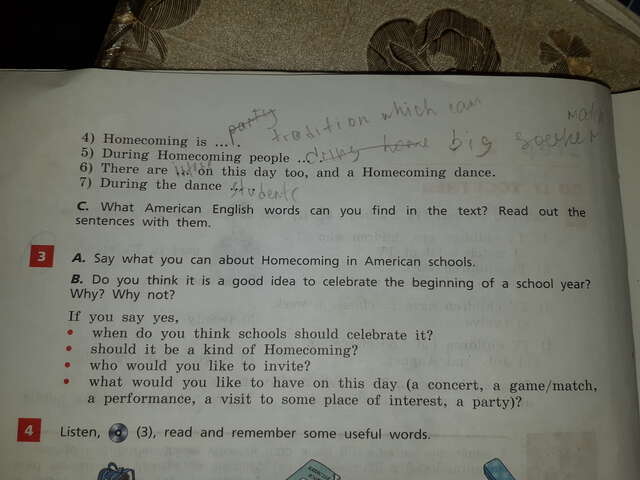 party
tradition which can
4) Homecoming is ... .
5) During Homecoming people ... big
6) There are ... on this day too, and a Homecoming dance.
7) During the dance ... students
C. What American English words can you find in the text? Read out the
sentences with them.
3 A. Say what you can about Homecoming in American schools.
B. Do you think it is a good idea to celebrate the beginning of a school year?
Why? Why not?
If you say yes,
• when do you think schools should celebrate it?
• should it be a kind of Homecoming?
• who would you like to invite?
• what would you like to have on this day (a concert, a game/match,
a performance, a visit to some place of interest, a party)?
4 Listen, (3), read and remember some useful words.